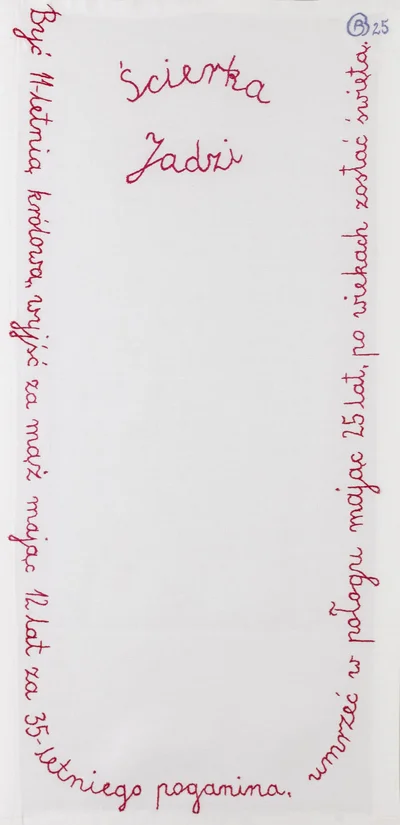 Ⓡ 25
Ścierka
Jadzi
Być 11-letnią królową, wyjść za mąż mając 12 lat za 35-letniego poganina, umrzeć w połogu mając 25 lat, po wiekach zostać świętą.